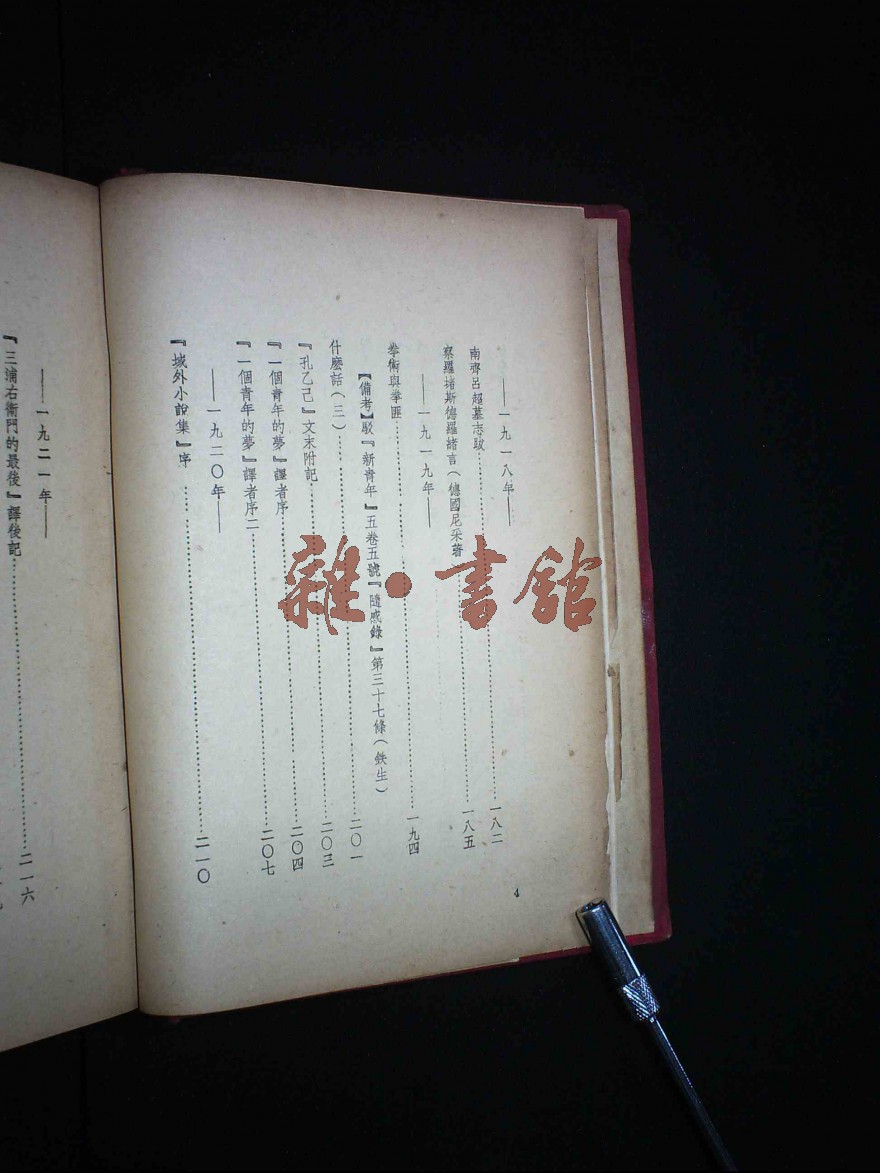 ——一九一八年——
南齊呂超墓志跋……一八二
察羅堵斯德羅緒言(德國尼采著……一八五
——一九一九年——
拳術與拳匪……一九四
【備考】駁『新青年』五卷五號『隨感錄』第三十七條(鉄生)
什麽話(三)……二〇一
『孔乙己』文末附記……二〇三
『一個青年的夢』譯者序……二〇四
『一個青年的夢』譯者序二……二〇七
——一九二〇年——
『域外小說集』序……二一〇
4
——一九二一年——
『三浦右衞門的最後』譯後記……二一六
雜·書館